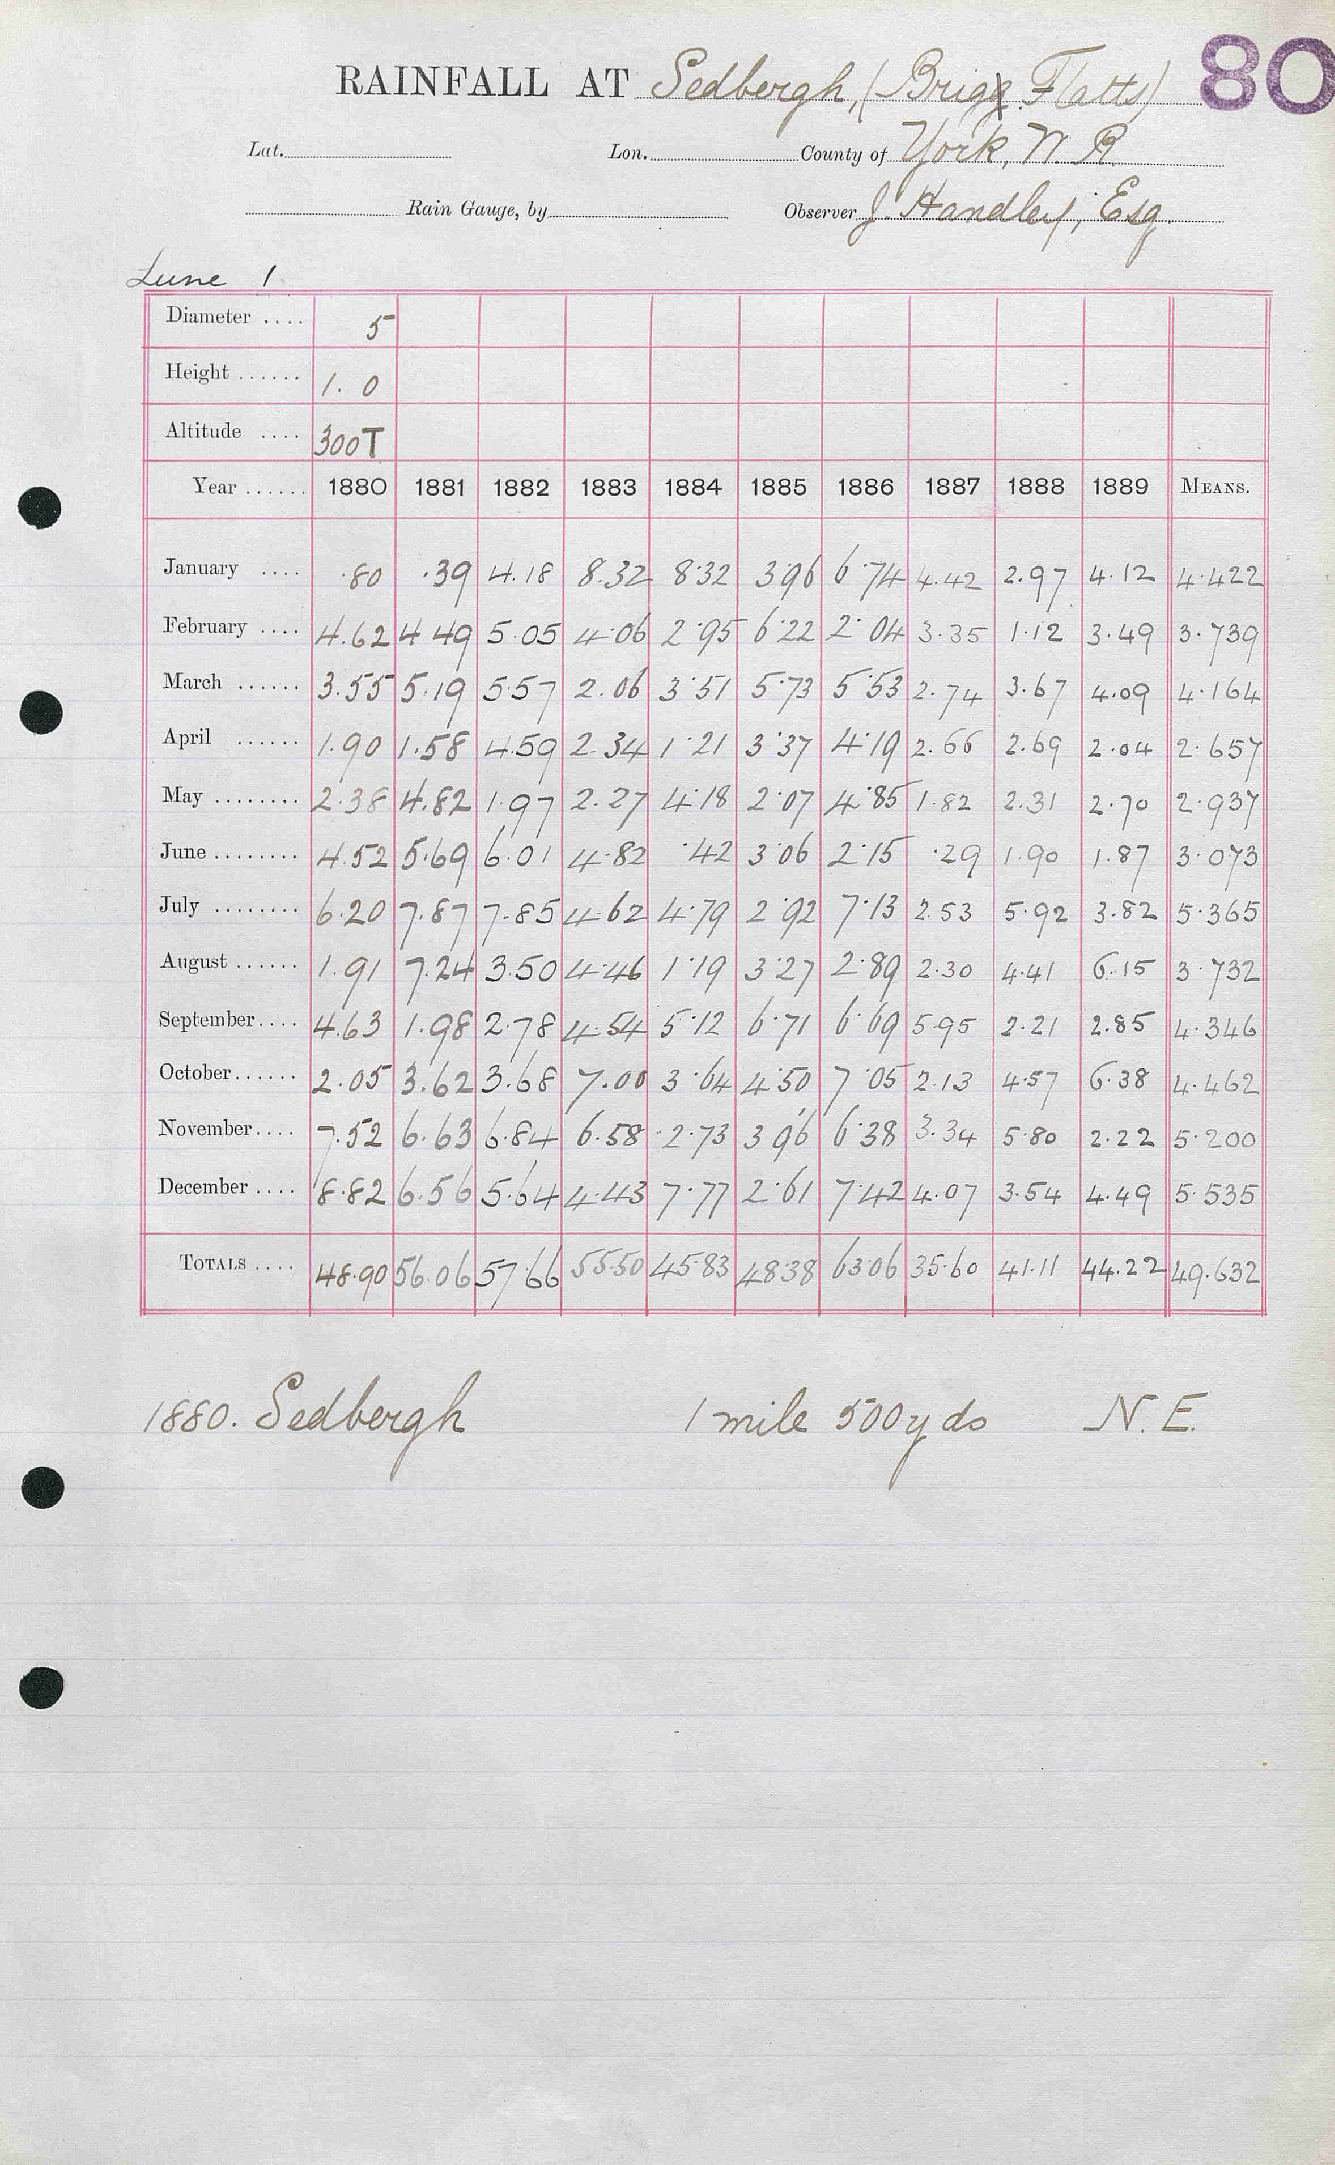 80
RAINFALL AT Sedbergh, (Brigg Flatts)
Lat. Lon. County of York, W. R.
Rain Gauge, by Observer J. Handley, Esq.
Lune 1
Diameter .... 5
Height ...... 1. 0
Altitude .... 300T
Year ...... 1880 1881 1882 1883 1884 1885 1886 1887 1888 1889 MEANS.
January .... .80 .39 4.18 8.32 8.32 3.96 6.74 4.42 2.97 4.12 4.422
February .... 4.62 4.49 5.05 4.06 2.95 6.22 2.04 3.35 1.12 3.49 3.739
March ...... 3.55 5.19 5.57 2.06 3.51 5.73 5.53 2.74 3.67 4.09 4.164
April ...... 1.90 1.58 4.59 2.34 1.21 3.37 4.19 2.66 2.69 2.04 2.657
May ........ 2.38 4.82 1.97 2.27 4.18 2.07 4.85 1.82 2.31 2.70 2.937
June ........ 4.52 5.69 6.01 4.82 .42 3.06 2.15 .29 1.90 1.87 3.073
July ........ 6.20 7.87 7.85 4.62 4.79 2.92 7.13 2.53 5.92 3.82 5.365
August ...... 1.91 7.24 3.50 4.46 1.19 3.27 2.89 2.30 4.41 6.15 3.732
September.... 4.63 1.98 2.78 4.54 5.12 6.71 6.69 5.95 2.21 2.85 4.346
October...... 2.05 3.62 3.68 7.00 3.64 4.50 7.05 2.13 4.57 6.38 4.462
November.... 7.52 6.63 6.84 6.58 2.73 3.96 6.38 3.34 5.80 2.22 5.200
December .... 8.82 6.56 5.64 4.43 7.77 2.61 7.42 4.07 3.54 4.49 5.535
TOTALS .... 48.90 56.06 57.66 55.50 45.83 48.38 63.06 35.60 41.11 44.22 49.632
1880. Sedbergh 1 mile 500 yds N. E.